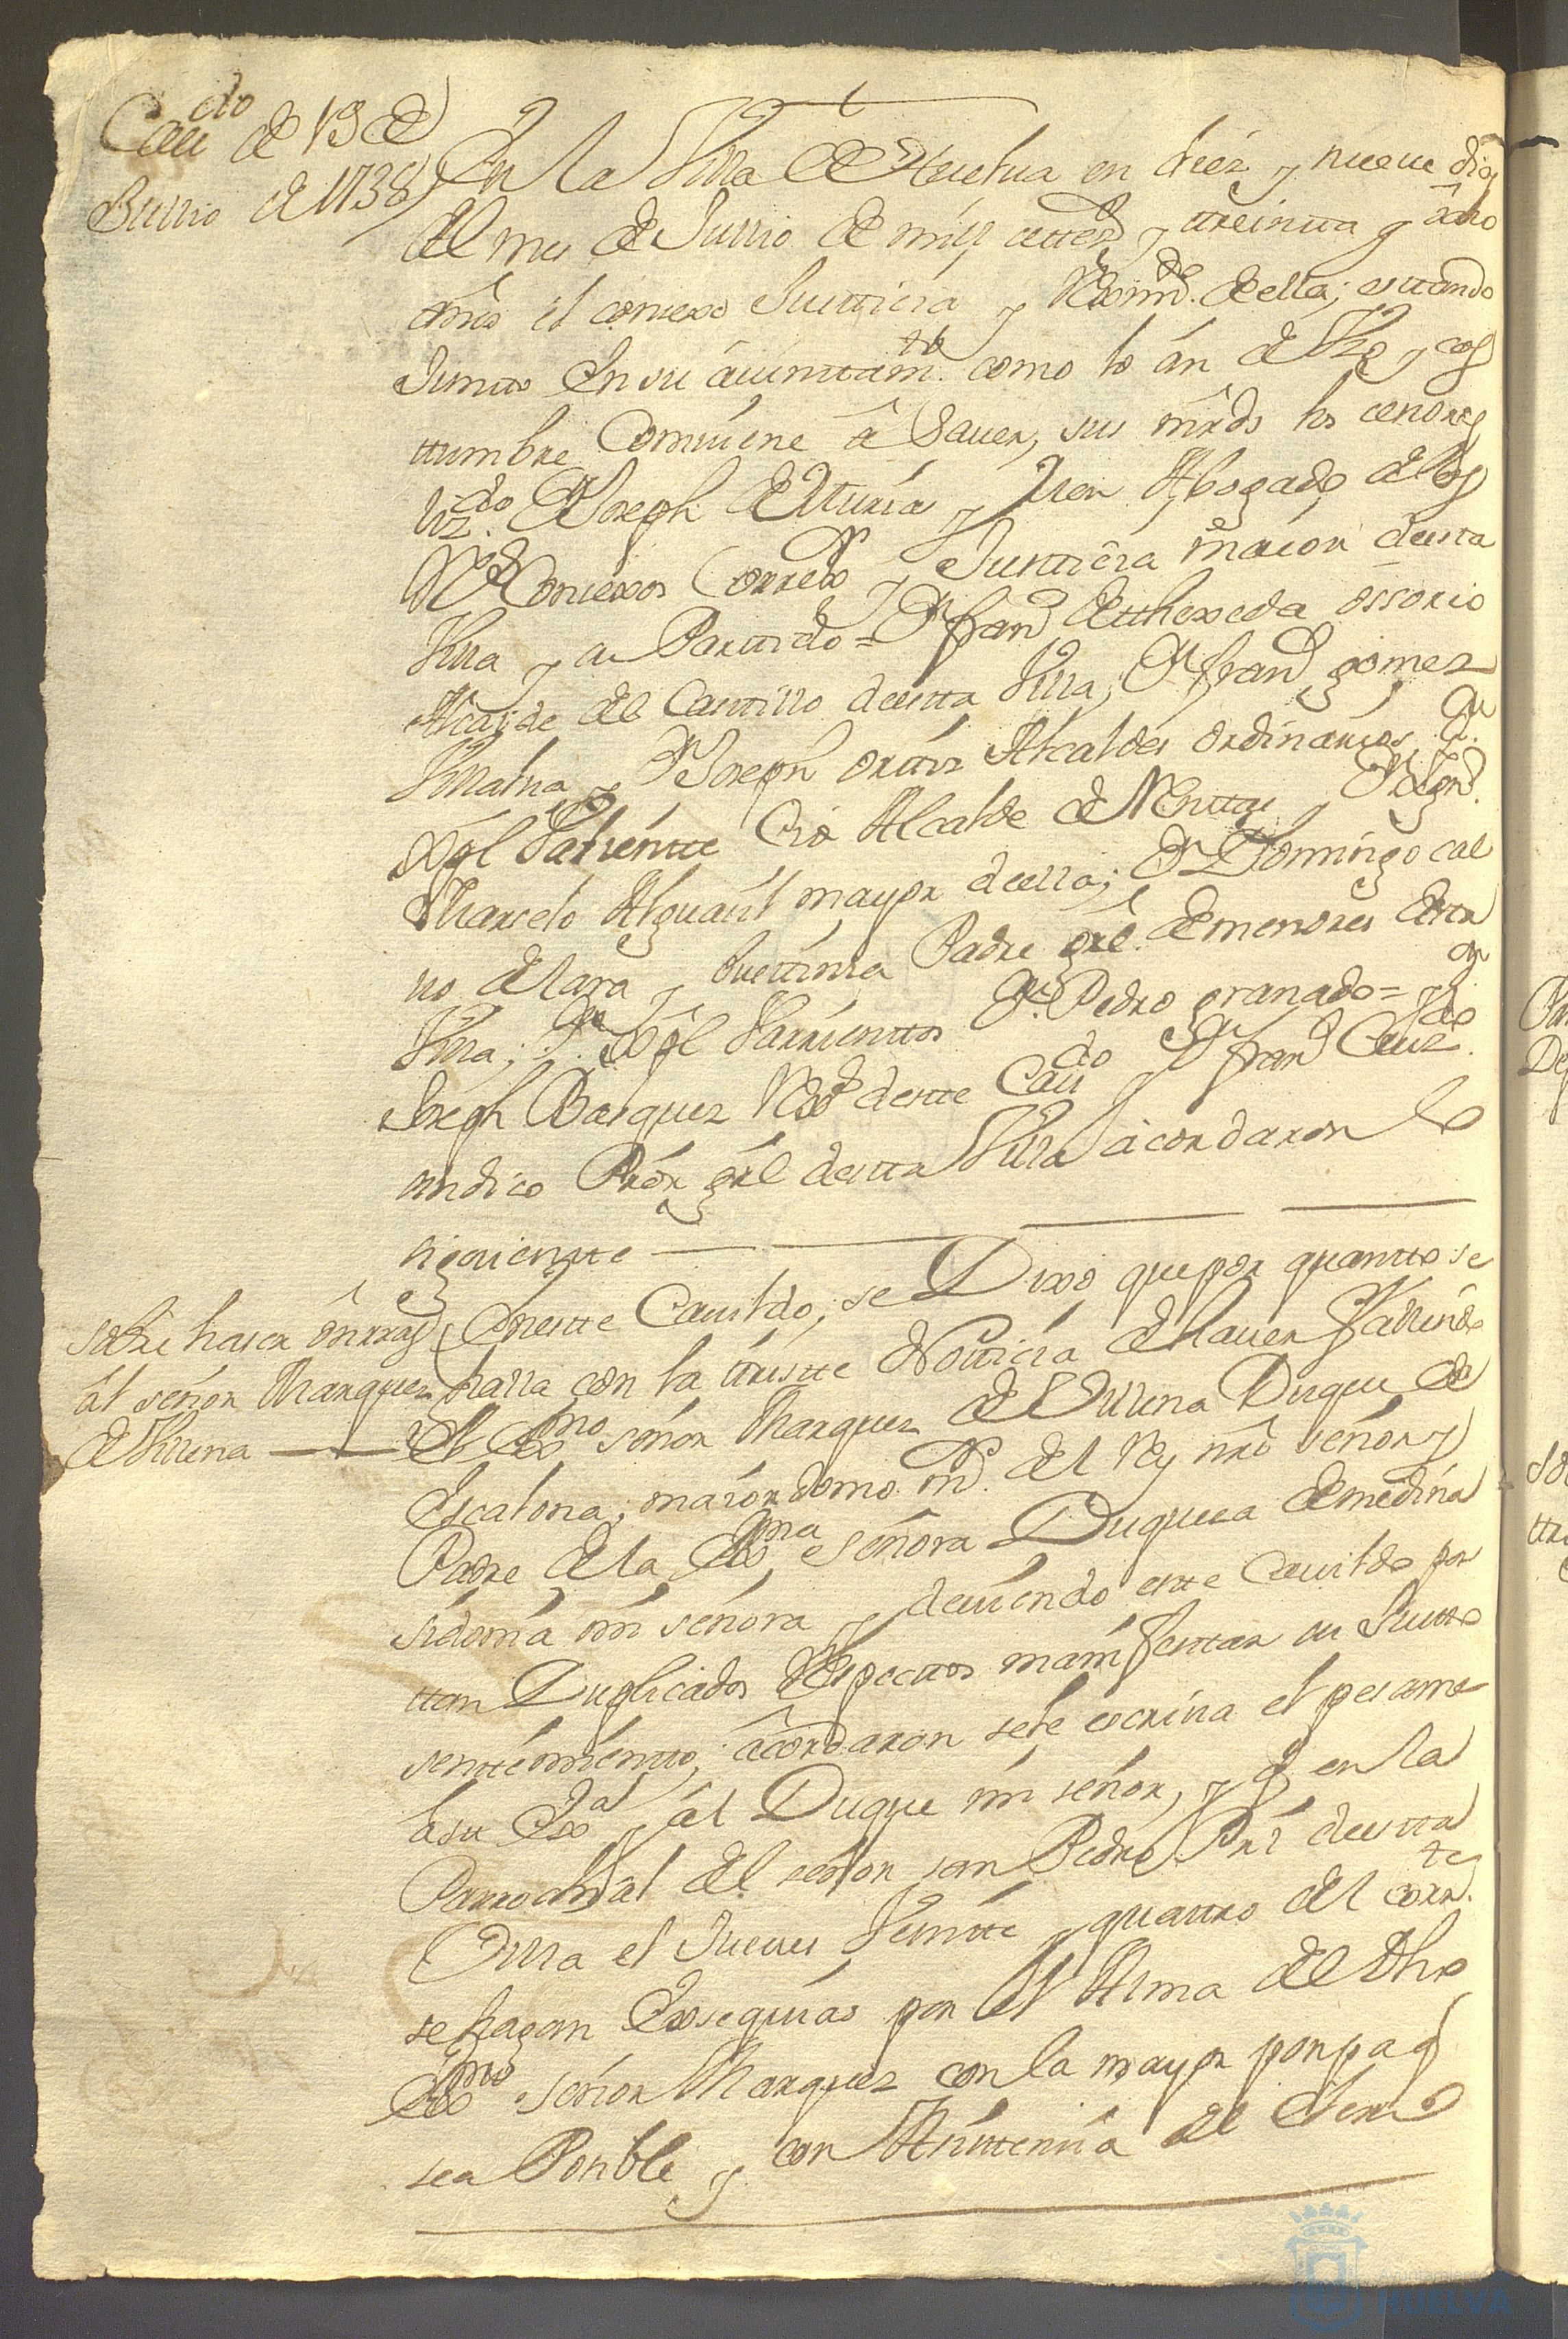 Cavdo de 19 de
Jullio de 1738
En la Villa de Huelva en diez y nueve dias
del mes de Jullio de mill setteztos y treintta y ocho
años el conxexo Justticia y Reximto de ella; esttando
Juntto en su aiunttamto como lo án de Vzo y cos
ttumbre Comviene â Saver, sus mrds los cenores
lizdo Dn Joseph de
Abogado de los
Rs Concexos Correxor y Justticia maior de esta
Villa y su Parttido = Dn franco de tthexeda ossorio
Alcaide del Casttillo de estta Villa; Dn franco gomez
Villalva y Dn Joseph orttiz Alcaldes ordinarios, Dn
Xptl Valientte Alcalde de Renttas y
Marcelo Alguasil mayor de ella; Dn Domingo cal
vo de lara y Padre grl de menores destta
Villa; Dn Xptl Varrienttos Dn Pedro granado = y Dn
Joseph Basquez Rexor destte Cavdo y Dn franco
sindico Pror grl destta Villa acordaron lo
siguientte
sobre haser onrras
al señor Marquez
de Villena
En estte Cavildo, se Dixo que por quantto se
halla con la tristte Notticia de haver fallesido
el Exmo señor Marquez de Villena Duque de
Escalona; maiordomo mr del Rey nro señor y
Padre de la Exma señora Duquesa de medina
sidonia mi señora y deviendo estte Cavildo por
ttan Duplicados Respecttos manifesttar su Justto
senttimientto; acordaron se le escriva el pesame
a su Exa y al Duque mi señor, y q en la
Parrochial del señor san Pedro de estta
Villa el Jueves Veintte y quattro del corrte
se hagan Exsequias por el Alma del dho
Exmo señor Marquez con la mayor ponpa q
sea Posible y con Asisttensia del Clero
Ayuntamiento
HUELVA